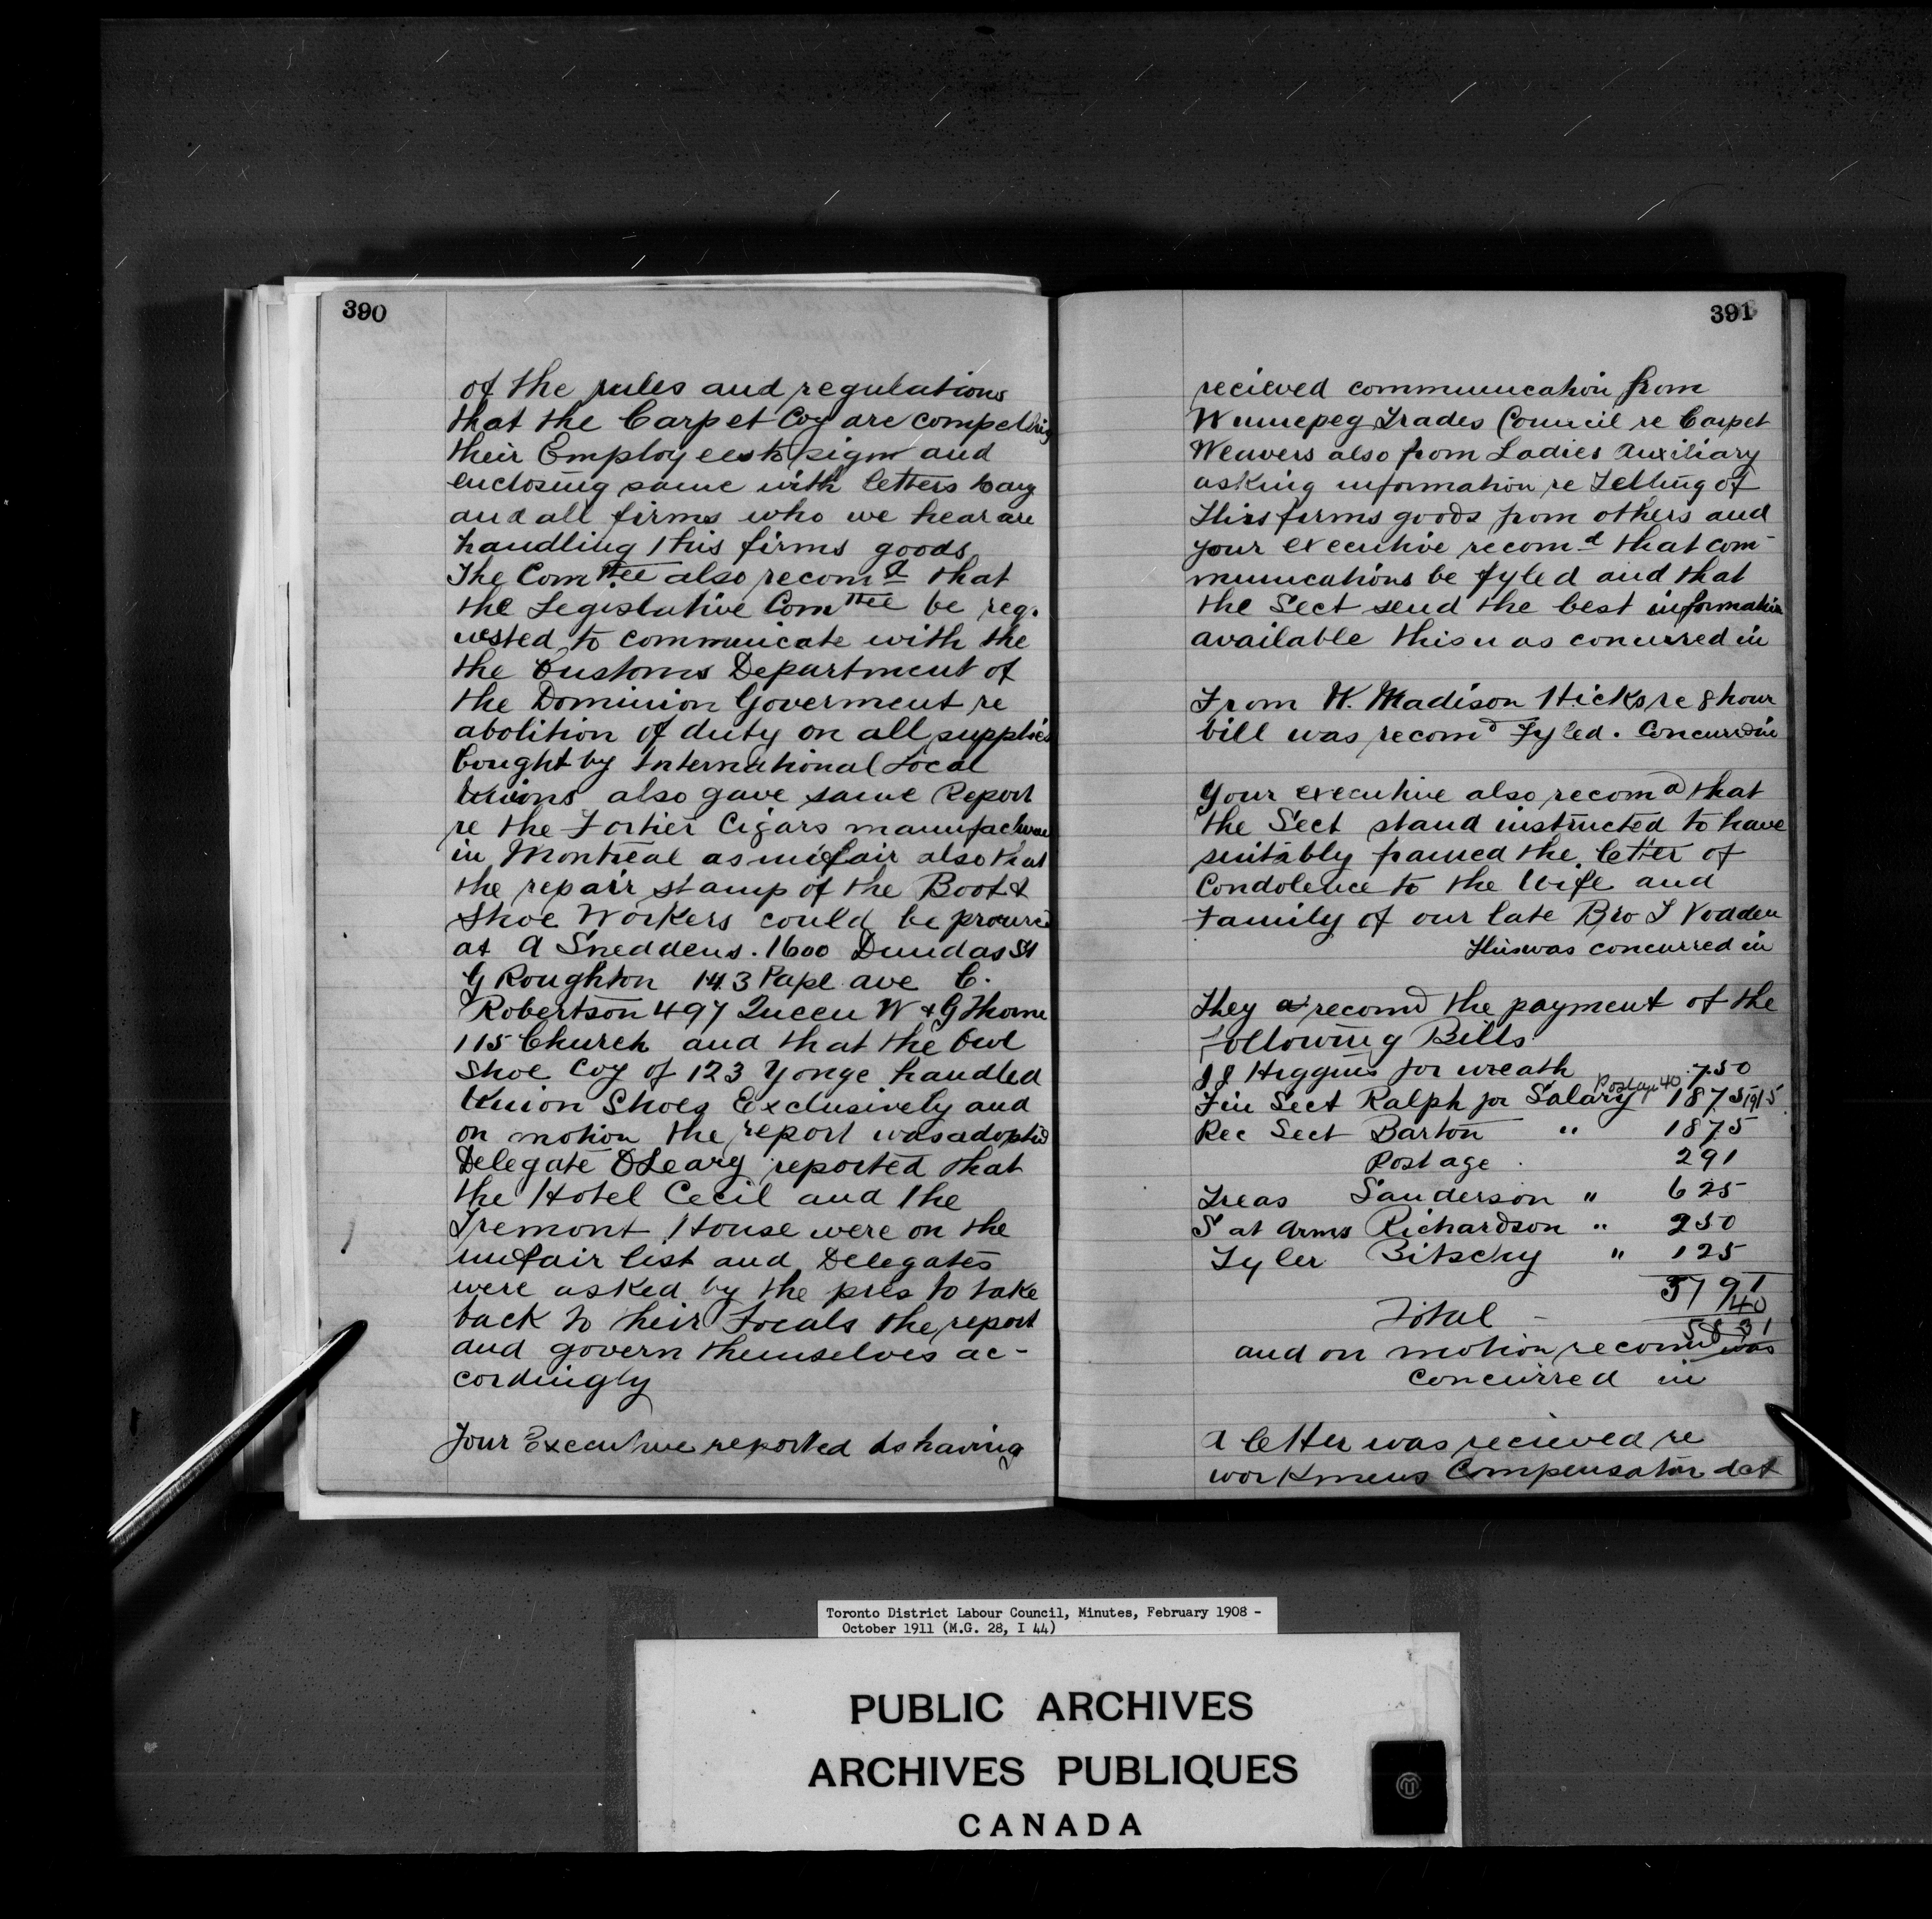 390
of the rules and regulations
that the Carpet Coy are compelling
their Employees to sign and
enclosing same with letters to any
and all firms who we hear are
handling this firms goods
The Comttee also recomd that
the Legislative Comttee be req-
uested to communicate with the
the Customs Department of
the Dominion Goverment re
abolition of duty on all supplies
bought by International Local
Unions also gave same Report
re the Fortier Cigars manufacture
in Montreal as unfair also that
the repair stamp of the Boot &
Shoe Workers could be procured
at A Sneddens. 1600 Dundas St
G Roughton 143 Pape ave C.
Robertson 497 Queen W & G Thorne
115 Church and that the Owl
Shoe Coy of 123 Yonge handled
Union Shoes Exclusively and
on motion the report was adopted
Delegate OLeary reported that
the Hotel Cecil and the
Tremont House were on the
unfair list and Delegates
were asked by the pres to take
back to their Locals the report
and govern themselves ac-
cordingly
Your Executive reported as having
391
recieved communication from
Winnepeg Trades Council re Carpet
Weavers also from Ladies Auxiliary
asking information re Telling of
this firms goods from others and
your executive recomd that com-
munications be fyled and that
the Sect send the best information
available this was concurred in
From W. Madison Hicks re 8 hour
bill was recomd Fyled. Concurred in
Your executive also recomd that
the Sect stand instructed to have
suitably framed the letter of
Condolence to the Wife and
Family of our late Bro T Vodden
This was concurred in
They recomd the payment of the
Following Bills
J J Higgins for wreath 7.50
Fin Sect Ralph for Salary Postage 40 1875 1915
Rec Sect Barton " 1875
Postage 291
Treas Sanderson " 625
S at Arms Richardson " 250
Tyler Bitschy " 125
5791
40
Total - 5831
and on motion recomd was
concurred in
A letter was recieved re
workmens Compensation Act
Toronto District Labour Council, Minutes, February 1908 -
October 1911 (M.G. 28, I 44)
PUBLIC ARCHIVES
ARCHIVES PUBLIQUES
CANADA